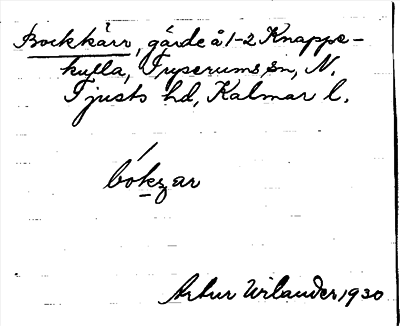 Bockkärr, gärde å 1-2 Knappe-
kulla, Tryserums sn, N.
Tjusts hd, Kalmar l.
bókʒar
Artur Wilander 1930